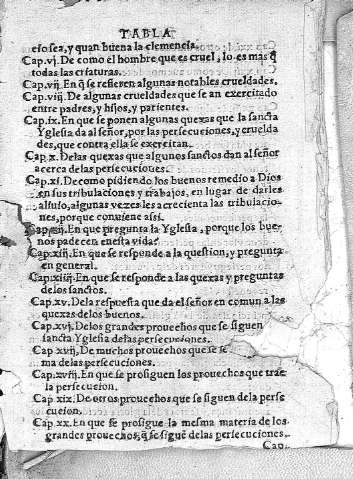 TABLA
cioſea, y quan buena la clemencia.
Cap.vj. De como el hombre que es cruel, lo es mas q̃
todas las criaturas.
Cap.vij. En q̃ ſe refieren algunas notables crueldades.
Cap.viij. De algunas crueldades que ſe an exercitado
entre padres, y hijos, y parientes.
Cap.ix. En que ſe ponen algunas quexas que la ſancta
Ygleſia da al ſeñor, por las perſecuciones, y cruelda
des, que contra ella ſe exercitan.
Cap.x. Delas quexas que algunos ſanctos dan al ſeñor
acerca delas perſecuciones.
Cap.xi. De como pidiendo los buenos remedio a Dios
en ſus tribulaciones y trabajos, en lugar de darles
aliuio, algunas vezes les acrecienta las tribulacio-
nes, porque conuiene aſsi.
Cap.xij. En que pregunta la Ygleſia, porque los bue-
nos padecen eneſta vida?
Cap.xiij. En que ſe responde a la queſtion, y pregunta
en general.
Cap.xiiij. En que ſe responde a las quexas y preguntas
delos ſanctos.
Cap.xv. Dela reſpueſta que da el ſeñor en comun a las
quexas delos buenos.
Cap.xvj. Delos grandes prouechos que ſe ſiguen
ſancta Ygleſia delas perſecuciones.
Cap.xvij. De muchos prouechos que ſe ſe
ma delas perſecuciones.
Cap.xviij. En que ſe proſiguen los prouechos que trae
la perſecucion.
Cap.xix. De otros prouechos que ſe ſiguen dela perſe
cucion.
Cap.xx. En que ſe proſigue la meſma materia de los
grandes prouechos, q̃ ſe ſiguẽ delas perſecuciones.
Cap.